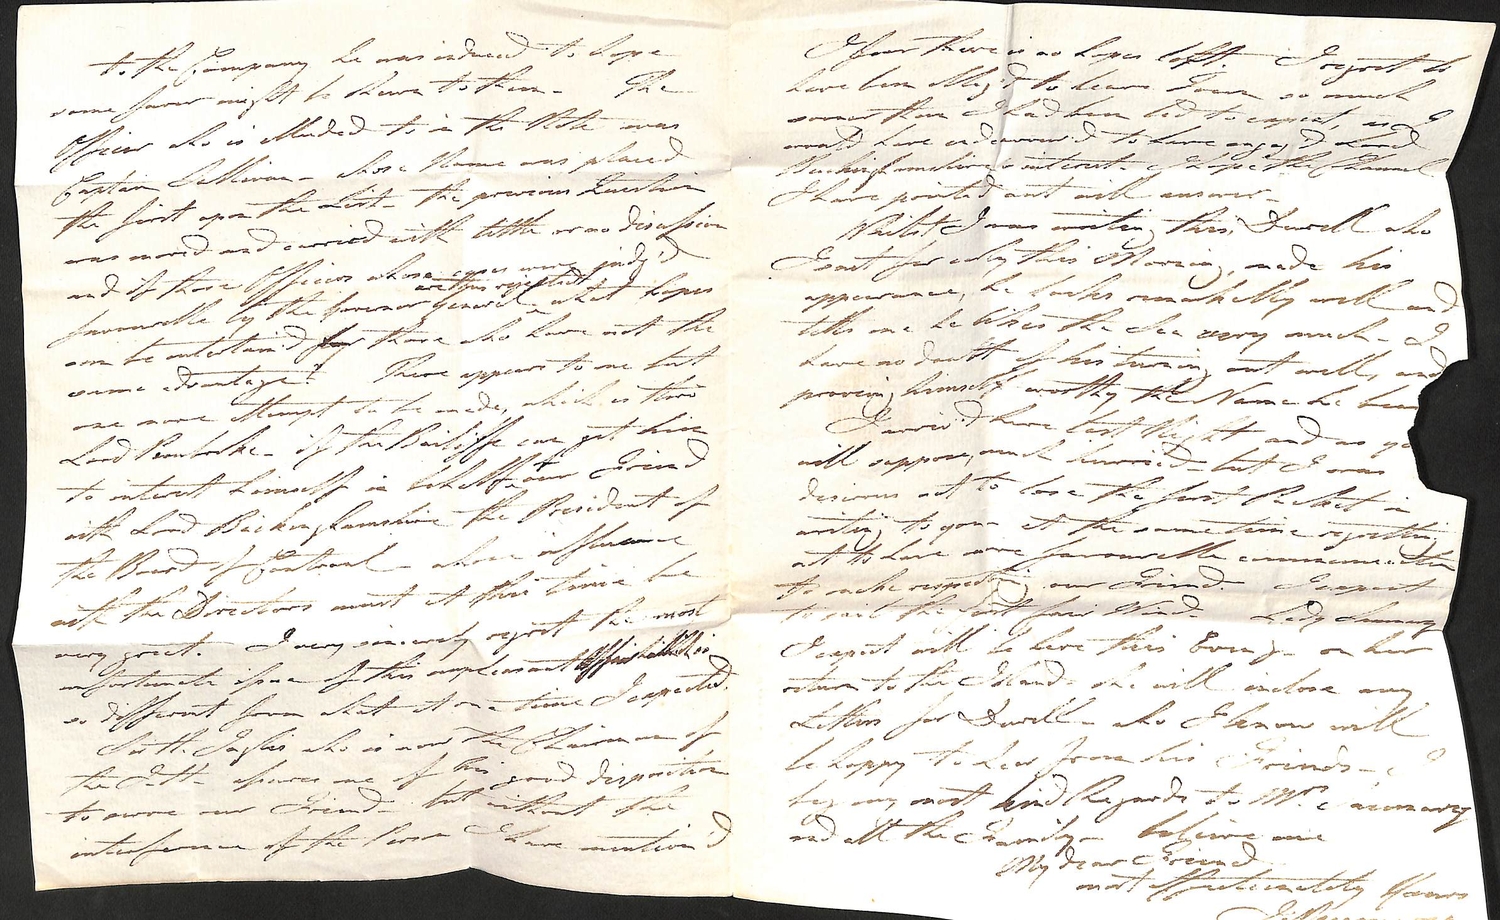 to the Company he was induced to hope
some favor might be shewn to them - The
Officer who is alluded to in the Note was
Captain Sullivan - whose Name was placed
the first upon the List. the previous Question
was moved and carried with little or no discussion
and if those Officers whose cases were judg'd
are thus rejected
favourable by the Governor General - what hopes
can be entertain'd for those who have not the
same advantage? There appears to me but
one more attempt to be made, which is thro
Lord Pembroke - if the Bailiffe can get him
to interest himself in behalf of our Friend
with Lord Buckinghamshire the President of
the Board of Controul - whose influence
with the Directors must at this time be
very great. I very sincerely regret the most
unfortunate issue of this unpleasant Affair which is
so different from what at one time I expected.
Inglis who is now the Chairman of
the assures me of his good disposition
to serve our Friend - but without the
interference of the Person I have mention'd
I fear there is no hopes left. I regret to
have been oblig'd to leave Town so much
sooner than I had been led to expect, as I
would have endeavour'd to have engag'd Lord
interest - I hope the Channel
I have pointed out will answer -
Whilst I was writing this, Durell who
I sent for early this Morning, made his
appearance, he looks remarkably well and
tells me he likes the Sea very much - I
have no doubt of his turning out well, and
proving himself worthy the Name he bears
I arriv'd here last Night and as you
will suppose, much hurried - but I was
desirous not to lose the first Packet in
writing to you at the same time regretting
not to have more favourable communication
to make respecting our Friend. I expect
to sail the first fair Wind. Lady Saumarez
I expect will be here this Evening - on her
return to the Island - she will inclose any
Letters for Durell - who I know will
be happy to hear from his Friends - I
beg my most kind Regards to Mrs. Saumarez
and all the Family - believe me
My dear Friend
most affectionately Yours